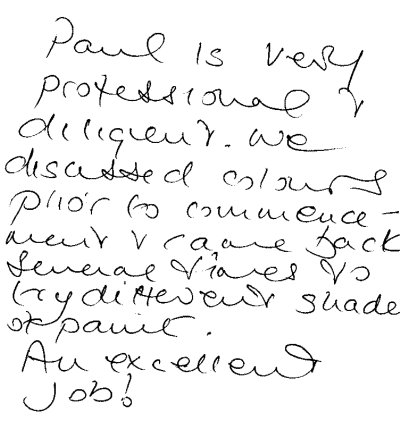 Paul is very
professional &
diligent. We
discussed colours
prior to commence-
ment & came back
several times to
try different shade
of paint.
An excellent
Job!